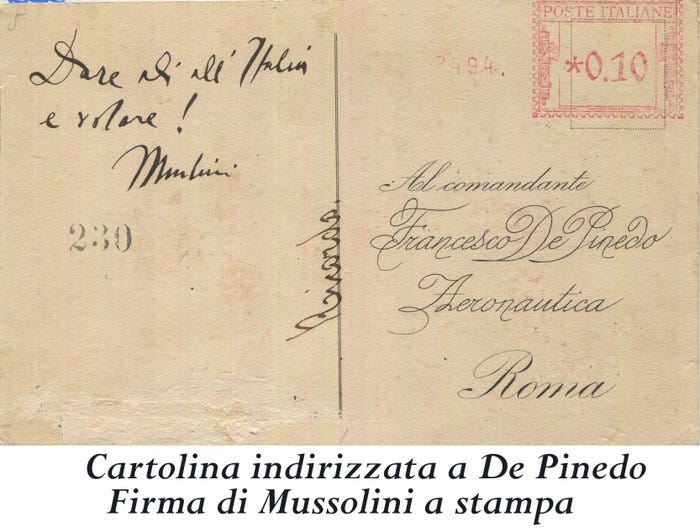 Dare ali all'Italia
e volare!
Mussolini
230
Ricordo.
2494.
POSTE ITALIANE
*0.10
Al comandante
Francesco De Pinedo
Aeronautica
Roma
Cartolina indirizzata a De Pinedo
Firma di Mussolini a stampa